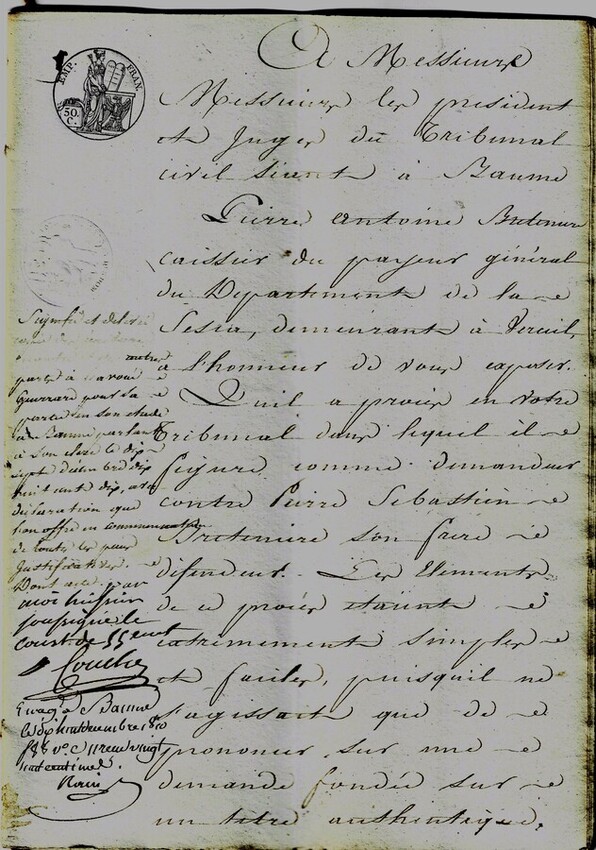 EMP. FRAN.
50. C.
A Messieurs
Messieurs les president
et Juges du Tribunal
civil séant à Baume
Pierre antoine Breteniere
caissier du payeur général
du Departement de la
Sesia, demeurant à Verceil,
a l'honneur de vous exposer.
Qu'il a procès en votre
Tribunal dans lequel il
figure comme demandeur
contre Pierre Sebastien
Breteniere son frere
défendeur. Les Elements
de ce procès etaient
extremement simples
et faciles, puisquil ne
s'agissait que de
prononcer sur une
demande fondée sur
un titre authentique,
Signifié et delivré
partie à Me avoué
Guerrard pour sa
partie en son etude
à Baume parlant
à son clerc le dix
sept décembre dix
huit cent dix, avec
déclaration que
l'on offre en communication
de toutes les pieces
Justificatives.
Dont acte par
moi huissier
soussigné le
cout est de 55 cent
Couche
Enreg. à Baume
le dix huit decembre 1810
vo. C. reçu vingt
huit centimes.